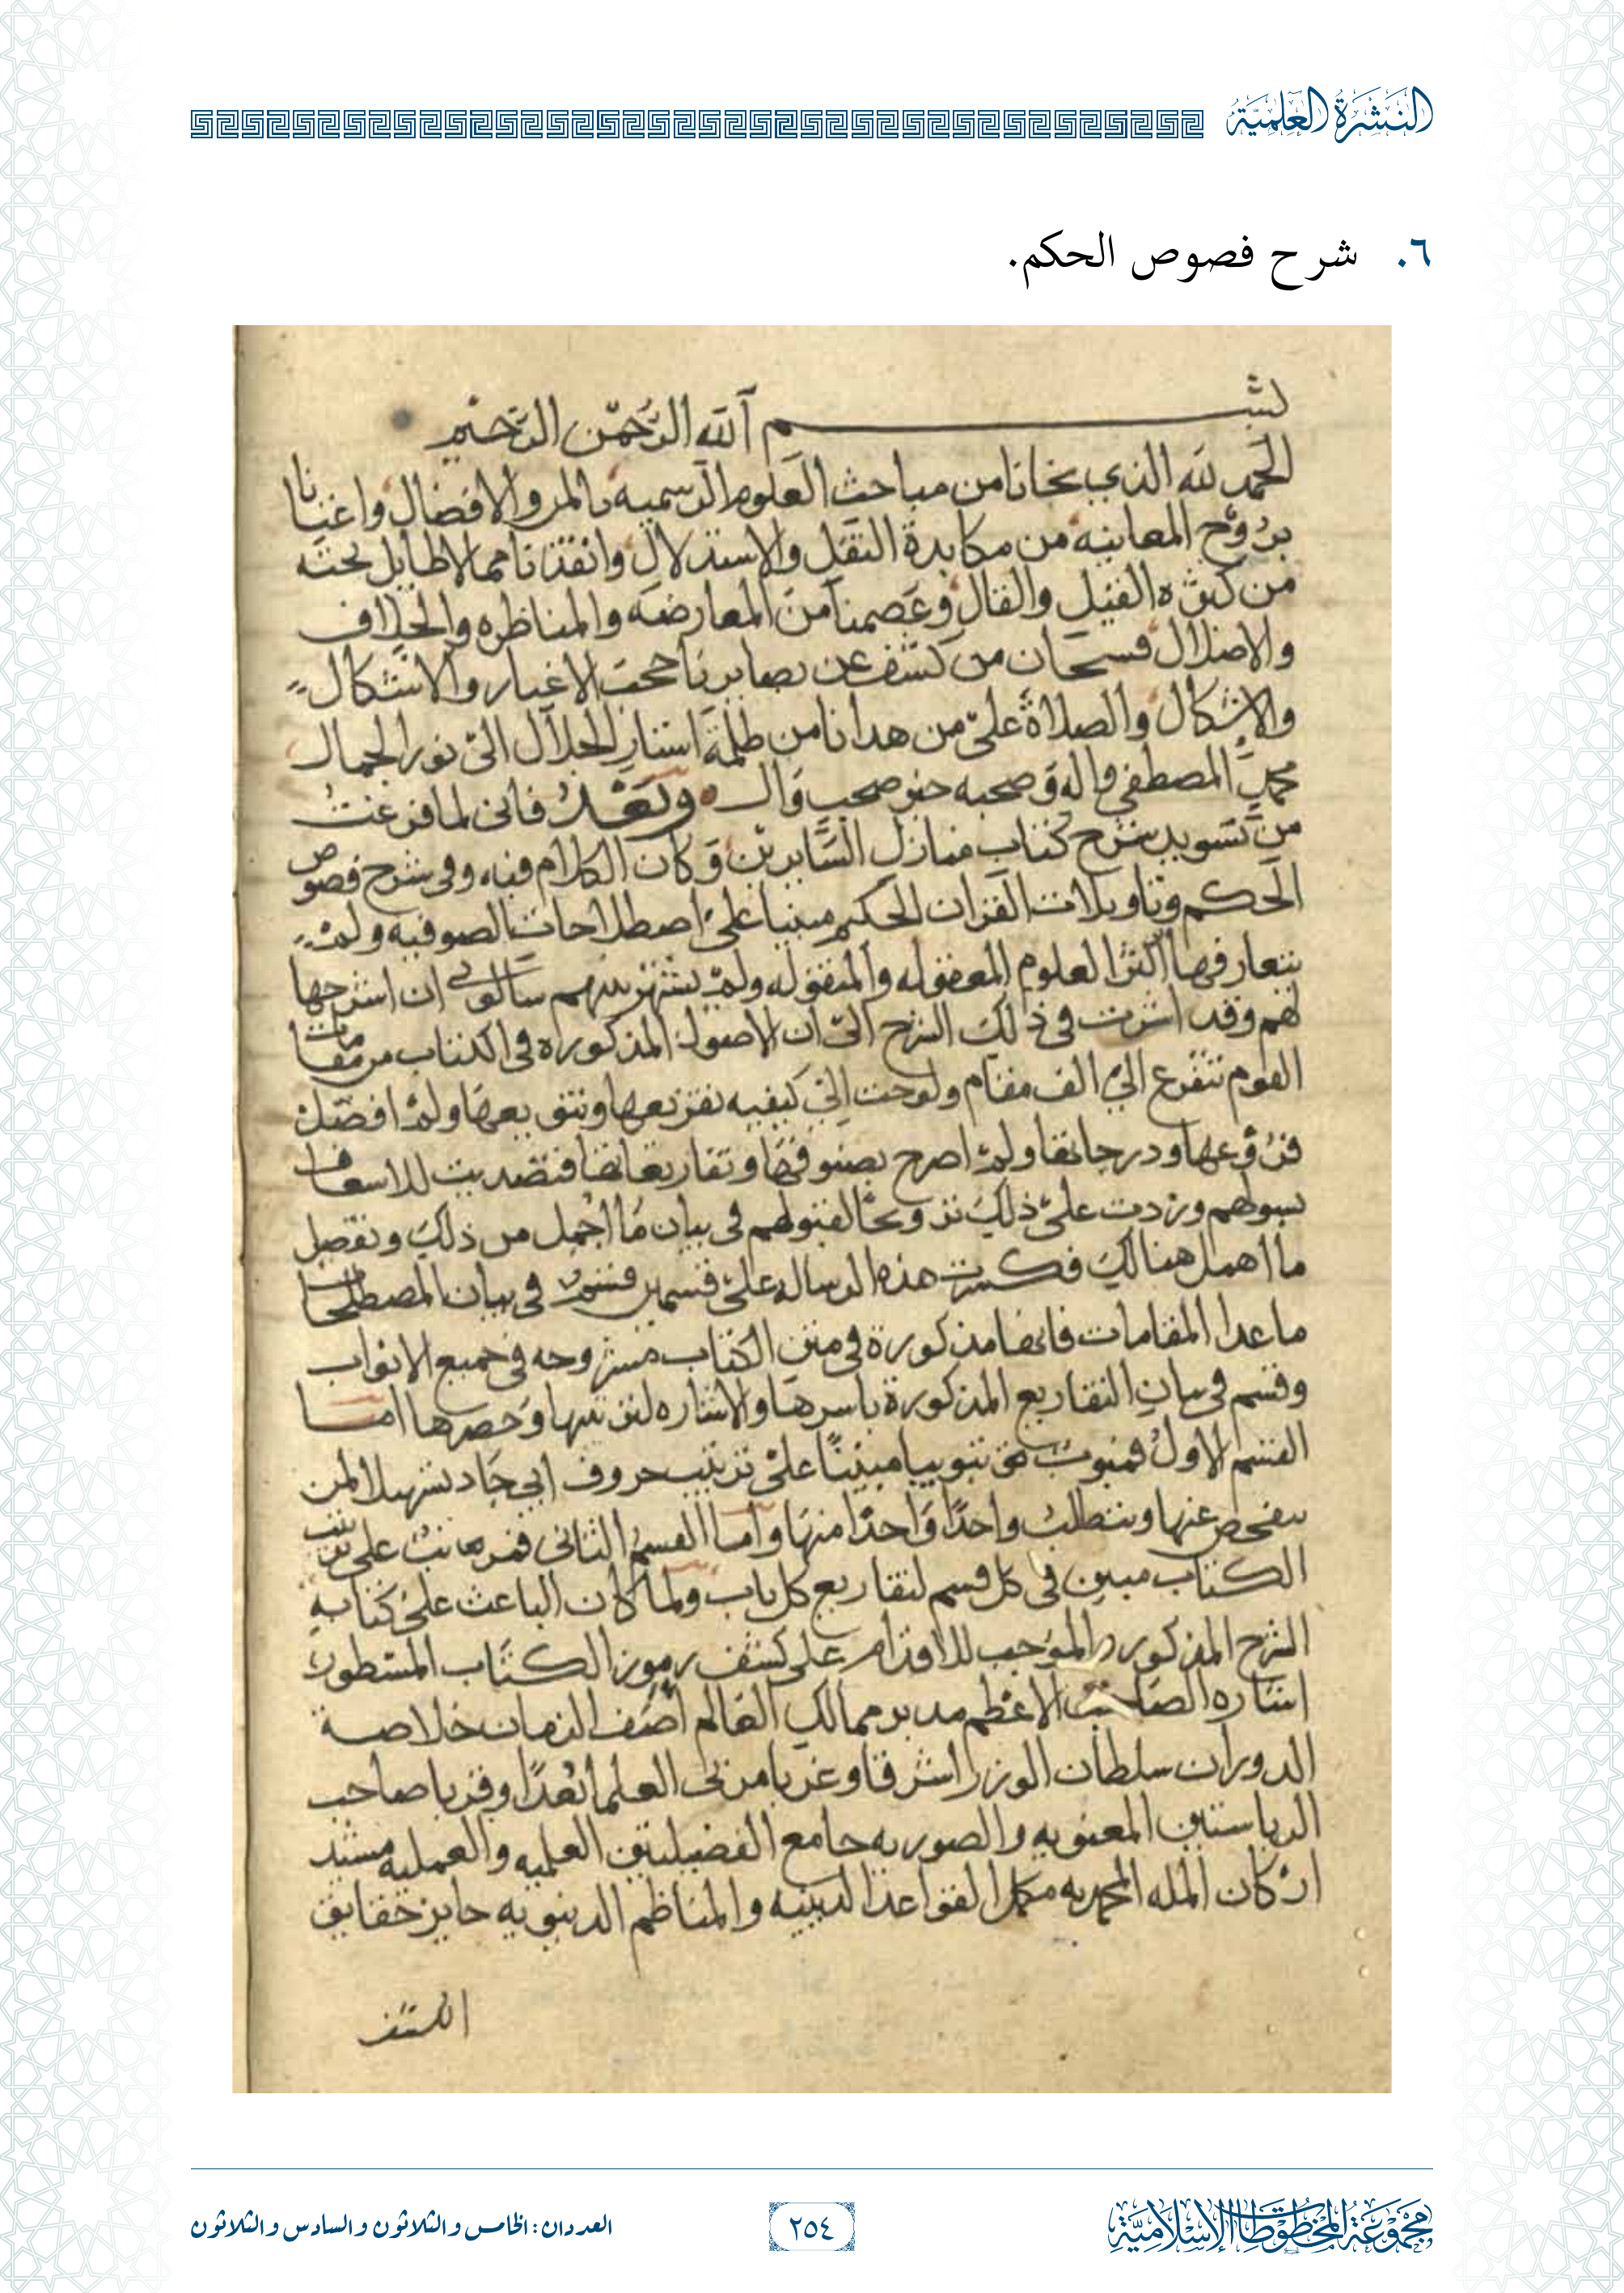 النشرة العلمية
٦. شرح فصوص الحكم.
بسم الله الرحمن الرحيم
الحمد لله الذي نجانا من مباحث العلوم الرسميه بالمن والافضال واغنانا
بروح المعاينه من مكابدة النقل والاستدلال وانقذنا مما لا طايل تحته
من كثره القيل والقال وعصمنا من المعارضه والمناظره والخلاف
والاضلال فسبحان من كشف عن بصايرنا حجب الاغيار والاشكال
والاشكال والصلاة على من هدانا من ظلمة استار الجلال الى نور الجمال
محمد المصطفى واله وصحبه خير صحب وال وبعد فانى لما فرغت
من تسويد شرح كتاب منازل السايرين وكان الكلام فيه وفى شرح فصوص
الحكم وتاويلات القران الحكيم مبنيا على اصطلاحات الصوفيه ولم
يتعارفها اكثر العلوم المعقوله والمنقوله ولم يشتهر بينهم سالونى ان اشرحها
لهم وقد اشرت فى ذلك الشرح الى ان الاصول المذكوره فى الكتاب من مقامات
القوم تتفرع الى الف مقام ولوحت الى كيفيه تفريعها وتنويعها ولم افصل
فروعها ودرجاتها ولم اصرح بصنوفها وتفاريعاتها فتصديت للاسعاف
بسولهم وزدت على ذلك ترويحا لقبولهم فى بيان ما اجمل من ذلك وتفصيل
ما اهمل هنالك فكسرت هذه الرساله على قسمين قسم فى بيان المصطلحات
ما عدا المقامات فانها مذكورة فى متن الكتاب مشروحه فى جميع الابواب
وقسم فى بيان التفاريع المذكورة باسرها والاشاره لترتيبها وحصرها اما
القسم الاول فمبوب تبويبا مبنيا على ترتيب حروف ابي جاد تسهيلا لمن
يتفحص عنها ويتطلب واحدا واحدا منها واما القسم الثانى فمرتب على ترتيب
الكتاب مبين فى كل قسم لتفاريع كل باب ولما كان الباعث على كتابه
الشرح المذكور والموجب للاقدام على كشف رموز الكتاب المسطور
اشاره الصاحب الاعظم مدبر ممالك العالم اصف الزمان خلاصة
الدوران سلطان الوزرا شرقا وغربا مربى العلما بعدا وقربا صاحب
الرياستين المعنويه والصوريه جامع الفضيلتين العلميه والعمليه مشيد
اركان المله المحمديه مكمل القواعد الدينيه والمناظم الدنيويه حايز حقايق
الكشف
مجموعة المخطوطات الإسلامية
٢٥٤
العددان: الخامس والثلاثون والسادس والثلاثون